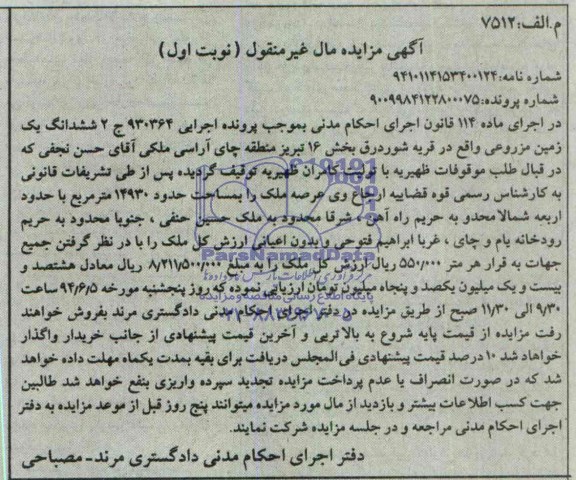 م.الف:۷۵۱۲
آگهی مزایده مال غیرمنقول (نوبت اول)
شماره نامه:۹۴۱۰۱۱۴۱۵۳۴۰۰۱۲۴
شماره پرونده:۹۰۰۹۹۸۴۱۲۲۸۰۰۰۷۵
در اجرای ماده ۱۱۴ قانون اجرای احکام مدنی بموجب پرونده اجرایی ۹۳۰۳۶۴ ج ۲ ششدانگ یک
زمین مزروعی واقع در قریه شوردرق بخش ۱۶ تبریز منطقه چای آراسی ملکی آقای حسن نجفی که
در قبال طلب موقوفات ظهیریه با تولیت کامران ظهیریه توقیف گردیده پس از طی تشریفات قانونی
به کارشناس رسمی قوه قضاییه ارجاع وی عرصه ملک را بمساحت حدود ۱۴۹۳۰ مترمربع با حدود
اربعه شمالامحدو به حریم راه آهن، شرقا محدود به ملک حسین حنفی، جنوبا محدود به حریم
رودخانه یام و چای، غربا ابراهیم فتوحی و بدون اعیانی ارزش کل ملک را با در نظر گرفتن جمیع
جهات به قرار هر متر ۵۵۰/۰۰۰ ریال ارزش کل ملک را به مبلغ ۸/۲۱۱/۵۰۰/۰۰۰ ریال معادل هشتصد و
بیست و یک میلیون یکصد و پنجاه میلیون تومان ارزیابی نموده که روز پنجشنبه مورخه ۹۴/۶/۵ ساعت
۹/۳۰ الی ۱۱/۳۰ صبح از طریق مزایده در دفتر اجرای احکام مدنی دادگستری مرند بفروش خواهند
رفت مزایده از قیمت پایه شروع به بالاترین و آخرین قیمت پیشنهادی از جانب خریدار واگذار
خواهاد شد ۱۰ درصد قیمت پیشنهادی فی‌المجلس دریافت برای بقیه بمدت یکماه مهلت داده خواهد
شد که در صورت انصراف یا عدم پرداخت مزایده تجدید سپرده واریزی بنفع خواهد شد طالبین
جهت کسب اطلاعات بیشتر و بازدید از مال مورد مزایده میتوانند پنج روز قبل از موعد مزایده به دفتر
اجرای احکام مدنی مراجعه و در جلسه مزایده شرکت نمایند.
دفتر اجرای احکام مدنی دادگستری مرند-مصباحی
ParsNamadData
پایگاه اطلاع رسانی مناقصه و مزایده